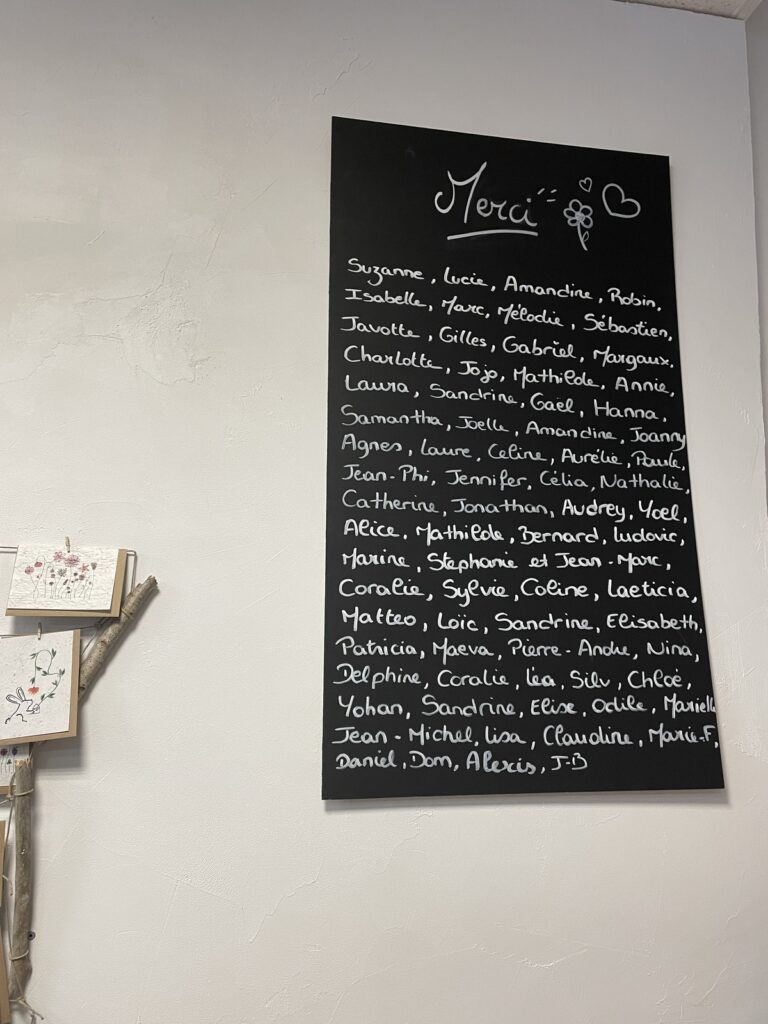 Merci
Suzanne, Lucie, Amandine, Robin,
Isabelle, Marc, Mélodie, Sébastien,
Javotte, Gilles, Gabriel, Margaux,
Charlotte, Jojo, Mathilde, Annie,
Laura, Sandrine, Gaël, Hanna,
Samantha, Joelle, Amandine, Joanny
Agnes, Laure, Celine, Aurélie, Paule,
Jean-Phi, Jennifer, Célia, Nathalie,
Catherine, Jonathan, Audrey, Yoel,
Alice, Mathilde, Bernard, Ludovic,
Marine, Stephanie et Jean-Marc,
Coralie, Sylvie, Coline, Laeticia,
Matteo, Loïc, Sandrine, Elisabeth,
Patricia, Maeva, Pierre-Andre, Nina,
Delphine, Coralie, Léa, Silv, Chloé,
Yohan, Sandrine, Elise, Odile, Marielle
Jean-Michel, Lisa, Claudine, Marie-F,
Daniel, Dom, Alexis, J-B